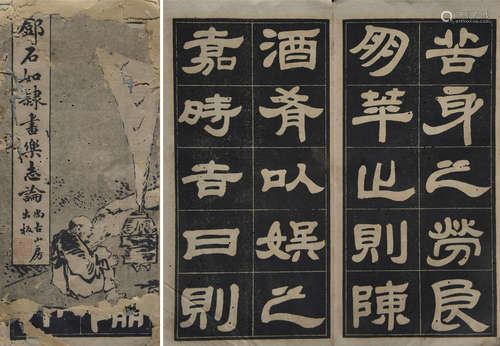 鄧石如隸書樂志論
尚古山房
出板
苦身之勞良
朋萃止則陳
酒肴以娛之
嘉時吉日則